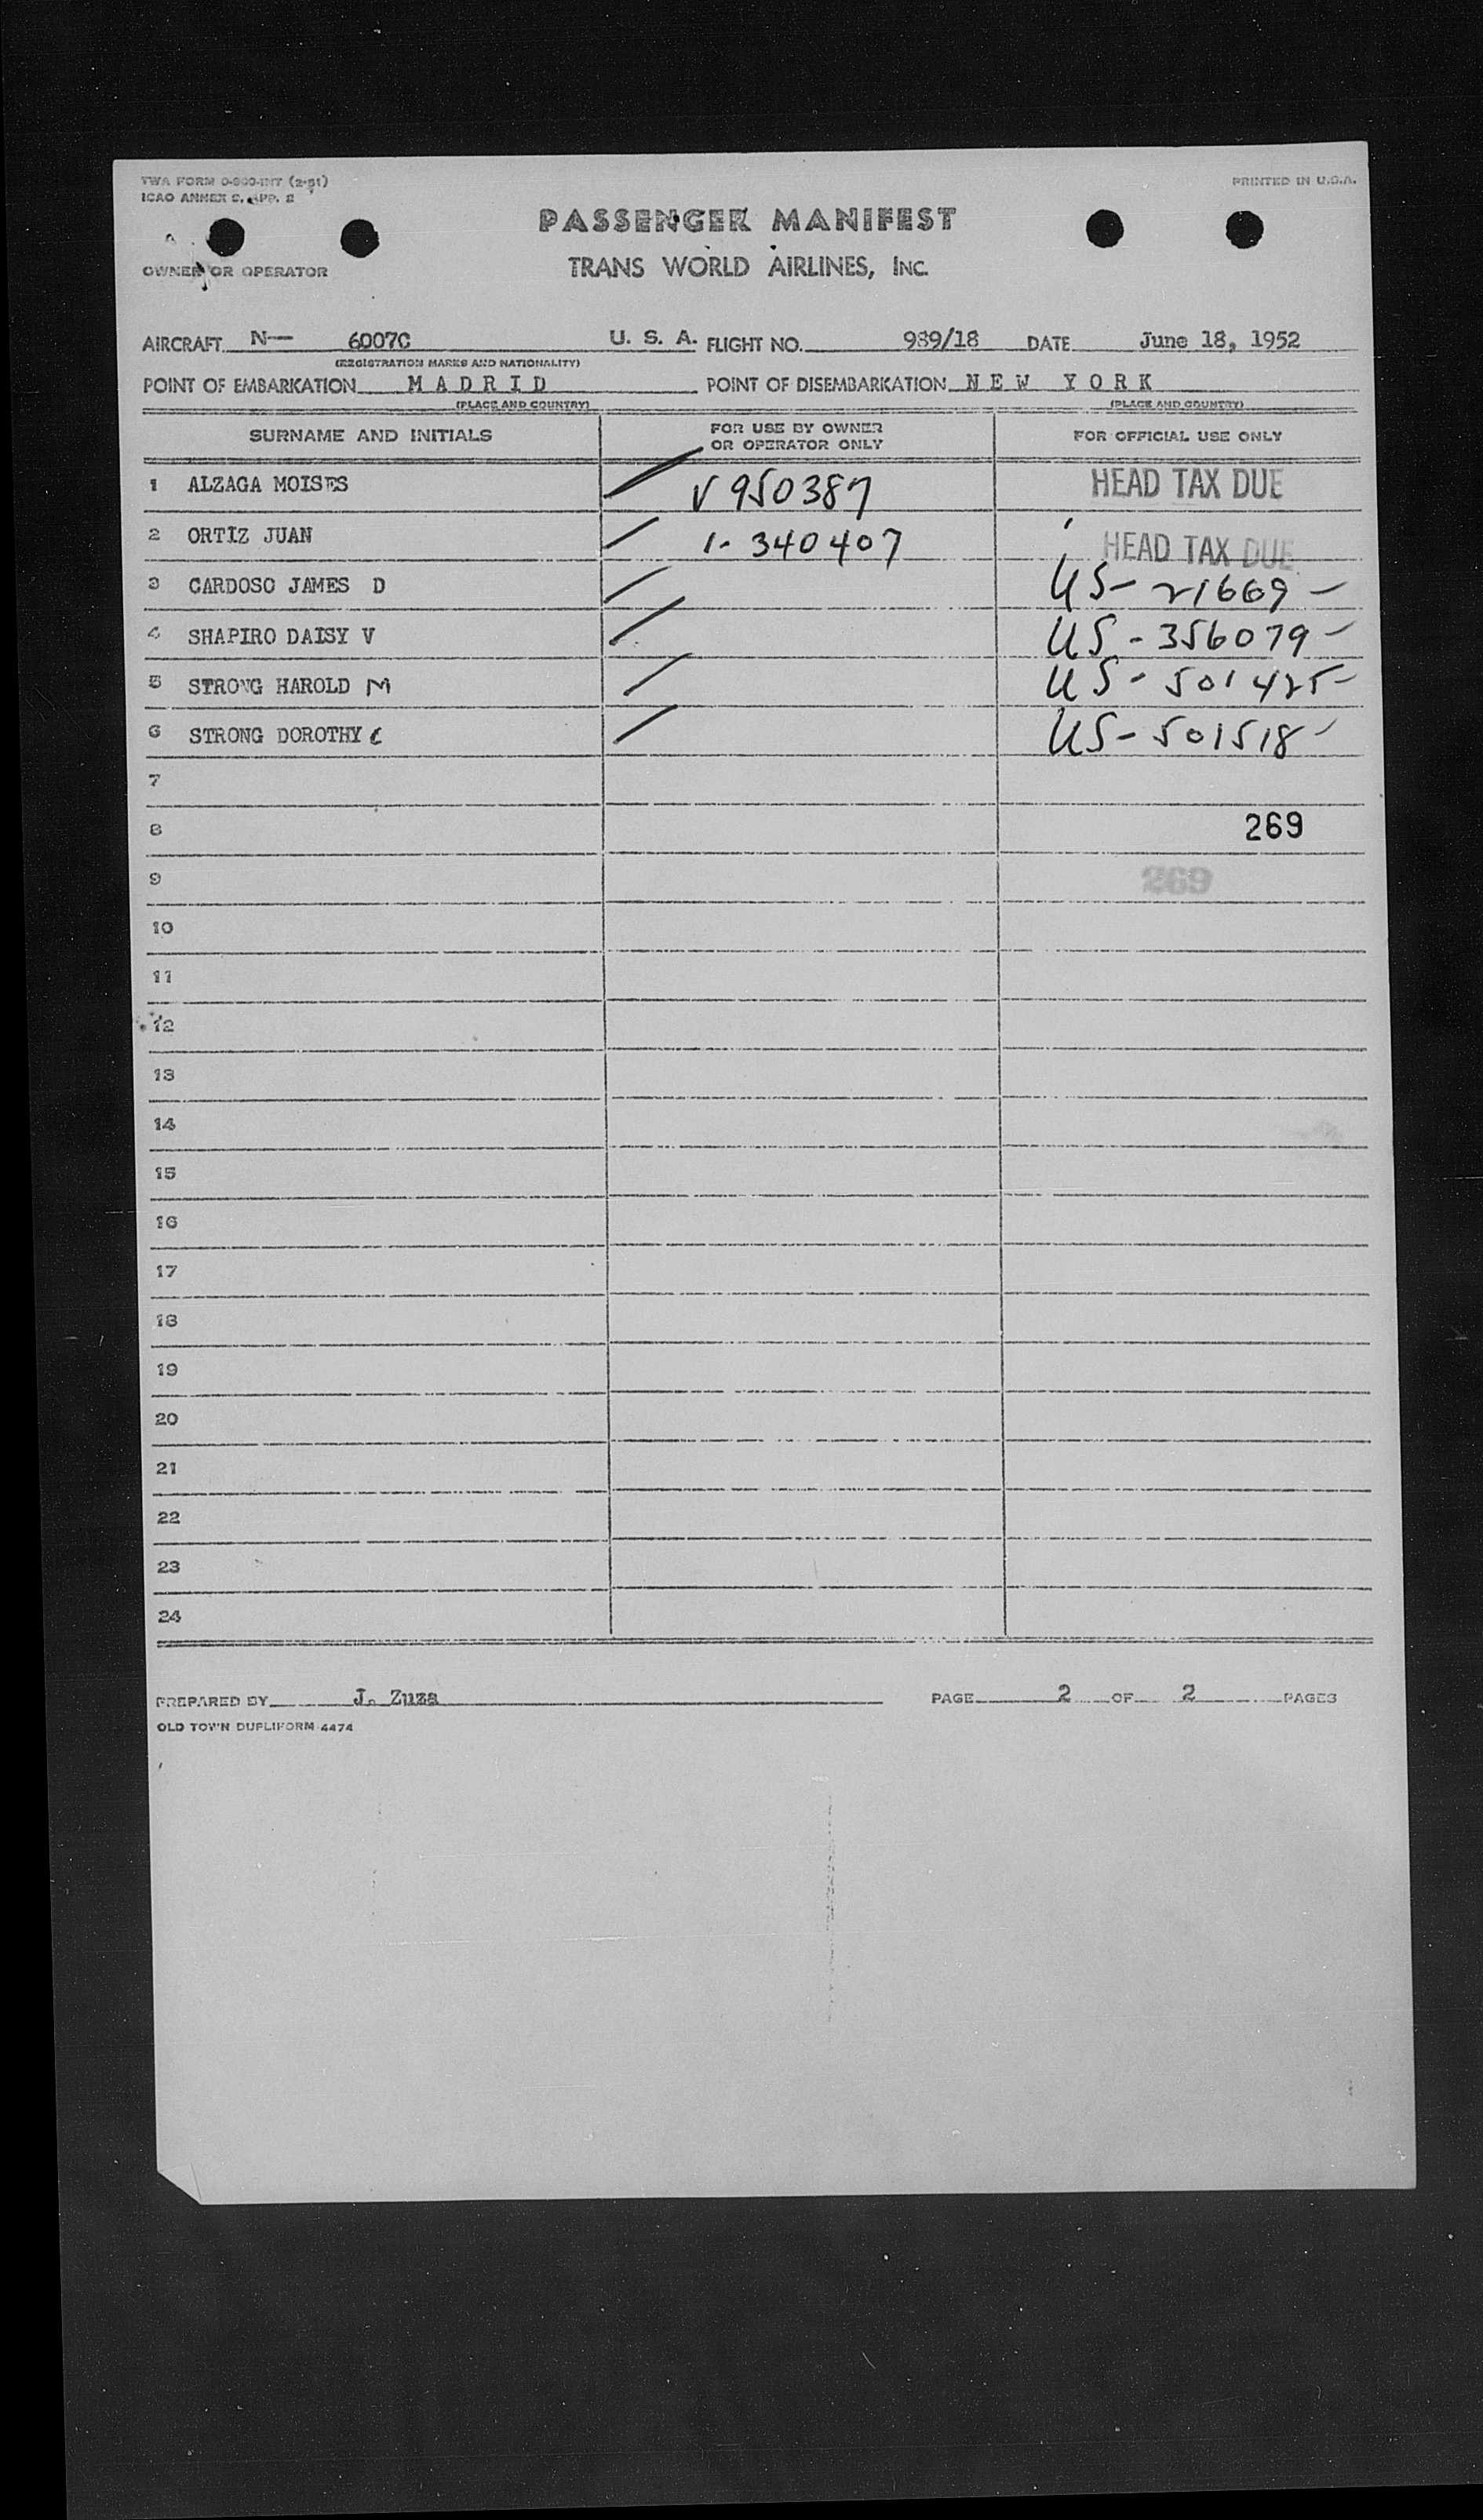 TWA FORM O-900-INT (2-51)
ICAO ANNEX 9, APP. 2
PRINTED IN U.S.A.
PASSENGER MANIFEST
OWNER OR OPERATOR TRANS WORLD AIRLINES, INC.
AIRCRAFT N— 6007C U. S. A. FLIGHT NO. 989/18 DATE June 18, 1952
(REGISTRATION MARKS AND NATIONALITY)
POINT OF EMBARKATION M A D R I D POINT OF DISEMBARKATION N E W Y O R K
(PLACE AND COUNTRY) (PLACE AND COUNTRY)
SURNAME AND INITIALS FOR USE BY OWNER OR OPERATOR ONLY FOR OFFICIAL USE ONLY
1 ALZAGA MOISES V 950387 HEAD TAX DUE
2 ORTIZ JUAN 1- 340407 HEAD TAX DUE
3 CARDOSO JAMES D US- 21669 -
4 SHAPIRO DAISY V US - 356079 -
5 STRONG HAROLD M US - 501425 -
6 STRONG DOROTHY C US - 501518 -
7
8 269
9 269
10
11
12
13
14
15
16
17
18
19
20
21
22
23
24
PREPARED BY J. Zuza PAGE 2 OF 2 PAGES
OLD TOWN DUPLIFORM 4474